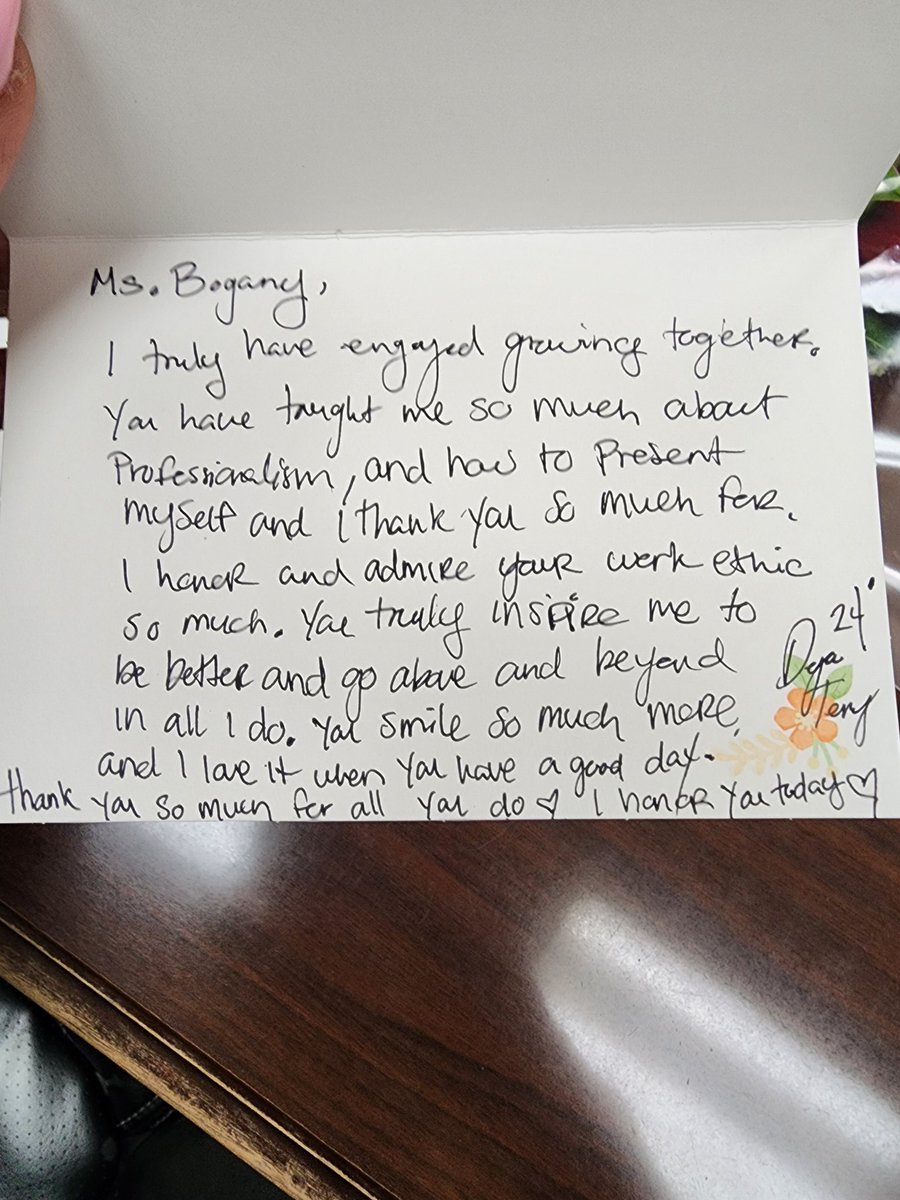 Ms. Bogany,
I truly have engoyed growing together.
You have taught me so much about
Professionalism, and how to Present
myself and I thank you so much for.
I honor and admire your work ethic
so much. You truly inspire me to
be better and go above and beyond
in all I do. You smile so much more,
and I love it when you have a good day.
thank you so much for all you do ♡ I honor you today ♡
24'
Terry